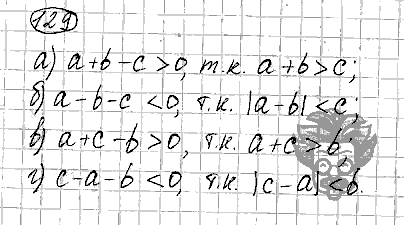 129
а) a+b-c>0, т.к. a+b>c;
б) a-b-c<0, т.к. |a-b|<c;
в) a+c-b>0, т.к. a+c>b;
г) c-a-b<0, т.к. |c-a|<b.